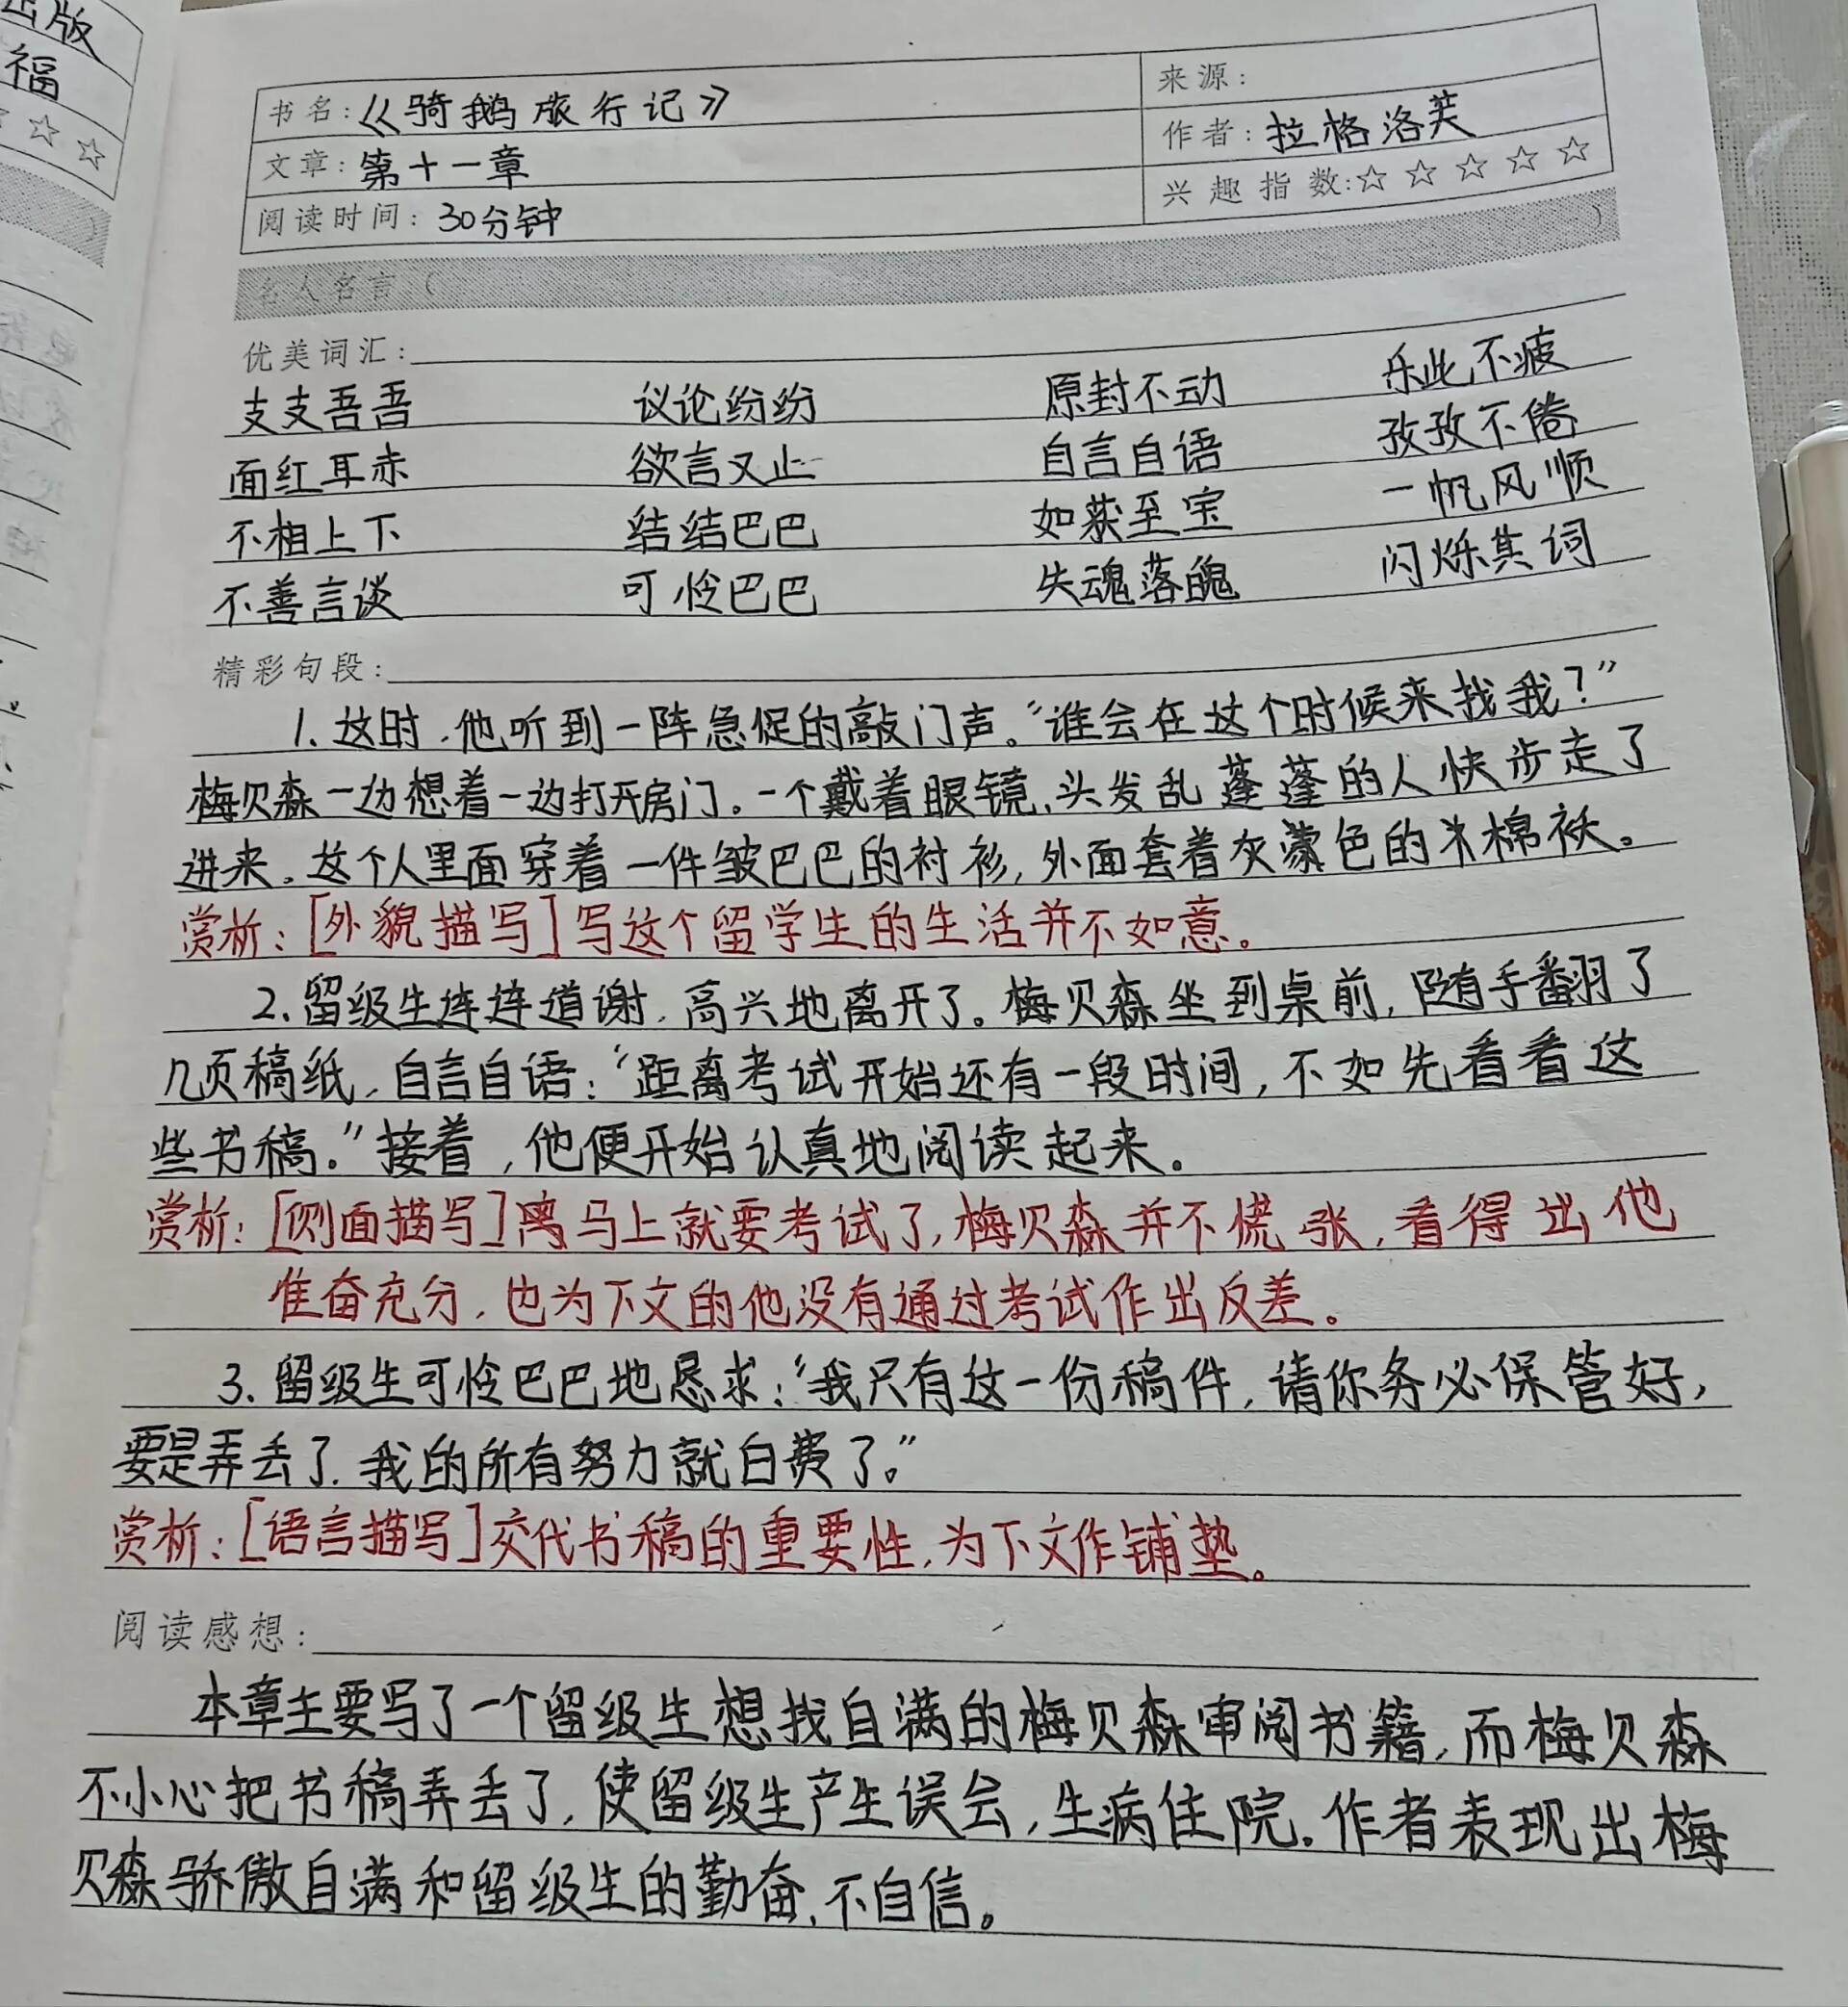 出版
福
☆ ☆
书名:《骑鹅旅行记》
来源:
文章:第十一章
作者:拉格洛芙
阅读时间:30分钟
兴趣指数:☆ ☆ ☆ ☆ ☆
名人名言( )
优美词汇:
支支吾吾 议论纷纷 原封不动 乐此不疲
面红耳赤 欲言又止 自言自语 孜孜不倦
不相上下 结结巴巴 如获至宝 一帆风顺
不善言谈 可怜巴巴 失魂落魄 闪烁其词
精彩句段:
1.这时,他听到一阵急促的敲门声。“谁会在这个时候来找我?”
梅贝森一边想着一边打开房门。一个戴着眼镜,头发乱蓬蓬的人快步走了
进来。这个人里面穿着一件皱巴巴的衬衫,外面套着灰蒙色的棉袄。
赏析:[外貌描写]写这个留学生的生活并不如意。
2.留级生连连道谢,高兴地离开了。梅贝森坐到桌前,随手翻了
几页稿纸,自言自语:“距离考试开始还有一段时间,不如先看看这
些书稿。”接着,他便开始认真地阅读起来。
赏析:[侧面描写]离马上就要考试了,梅贝森并不慌张,看得出他
准奋充分,也为下文的他没有通过考试作出反差。
3.留级生可怜巴巴地恳求:“我只有这一份稿件,请你务必保管好,
要是弄丢了,我的所有努力就白费了。”
赏析:[语言描写]交代书稿的重要性,为下文作铺垫。
阅读感想:
本章主要写了一个留级生想找自满的梅贝森审阅书籍,而梅贝森
不小心把书稿弄丢了,使留级生产生误会,生病住院。作者表现出梅
贝森骄傲自满和留级生的勤奋,不自信。